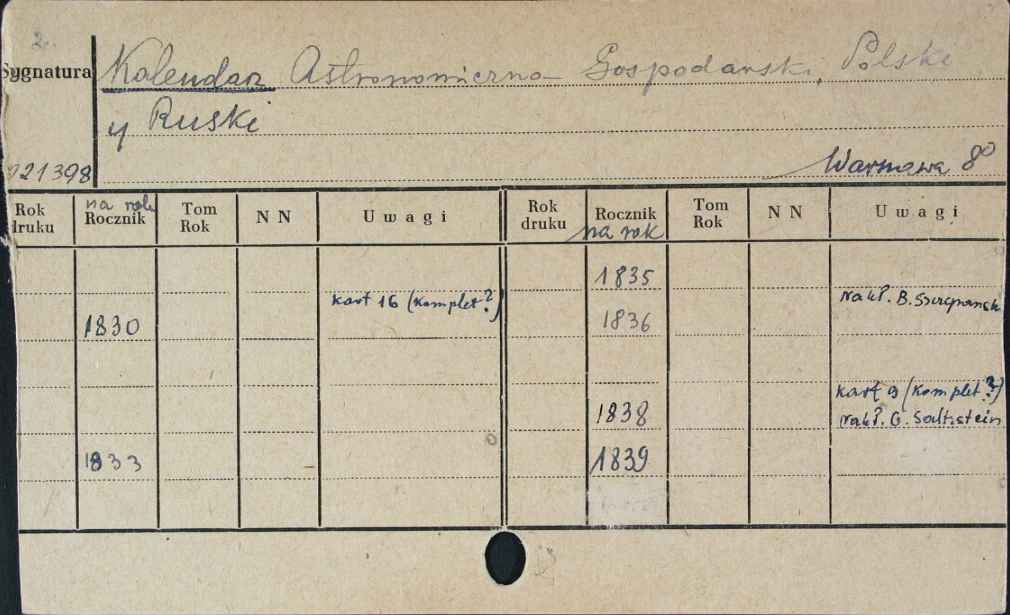 2.
Sygnatura Kalendarz Astronomiczno-Gospodarski, Polski
y Ruski
021398 Warszawa 8°
Rok druku na rok Rocznik Tom Rok N N Uwagi Rok druku Rocznik na rok Tom Rok N N Uwagi
1835
kart 16 (komplet?) nakł. B. Szczepański
1830 1836
kart 9 (komplet?)
1838 nakł. G. Saltzstein
1833 1839